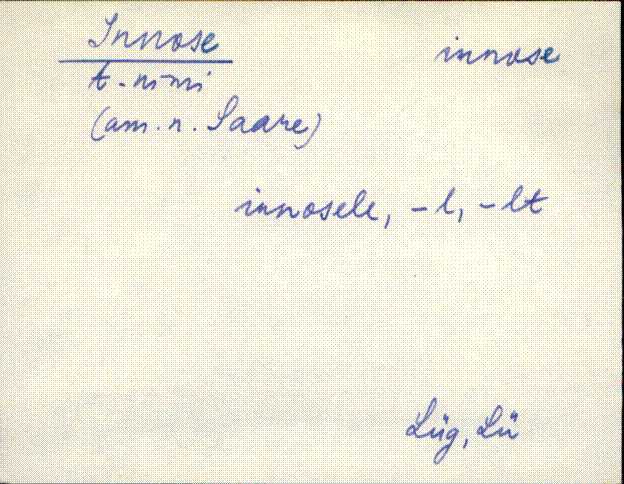 Innose innose
t. nimi
(am. n. Saare)
innosele, -l, -lt
Lüg, Lü